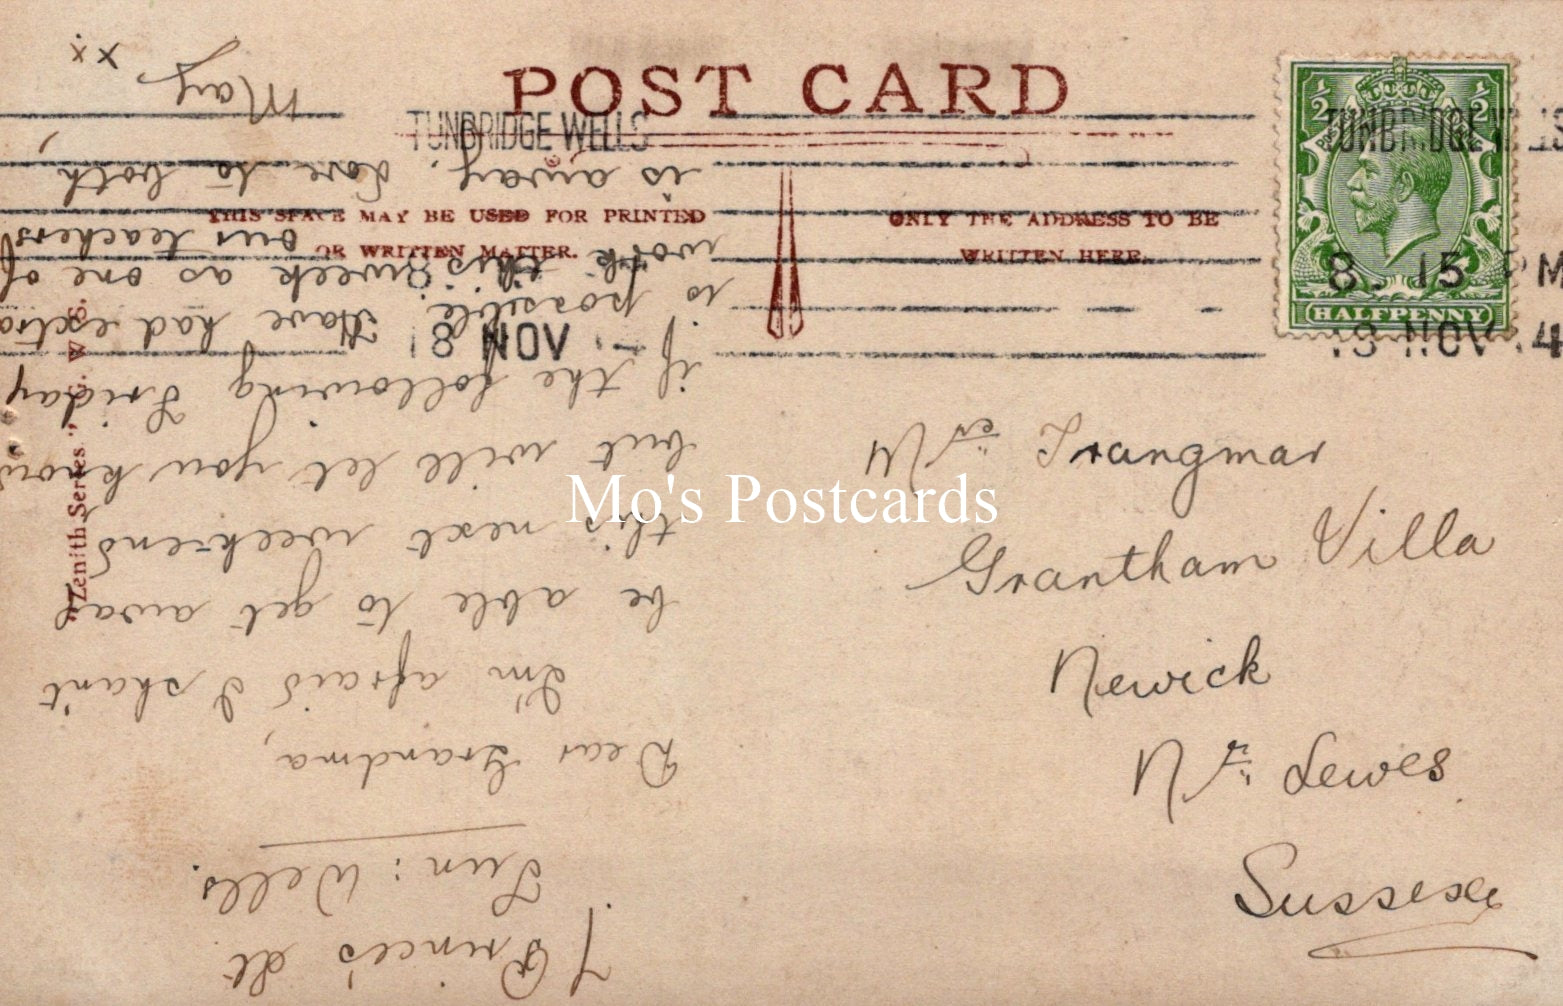 POST CARD
TUNBRIDGE WELLS
8. 15 PM
18 NOV 14
18 NOV
½ ½
HALFPENNY
THIS SPACE MAY BE USED FOR PRINTED
OR WRITTEN MATTER.
ONLY THE ADDRESS TO BE
WRITTEN HERE.
"Zenith Series." G. W.
Mrs Trangmar
Grantham Villa
Newick
Nr Lewes
Sussex
7 Prince's St
Tun: Wells.
Dear Grandma,
I'm afraid I shan't
be able to get away
this next week-end
but will let you know
if the following Friday
is possible. Have had extra
work this week as one of
our teachers
is away. Love to both,
May
x x
Mo's Postcards